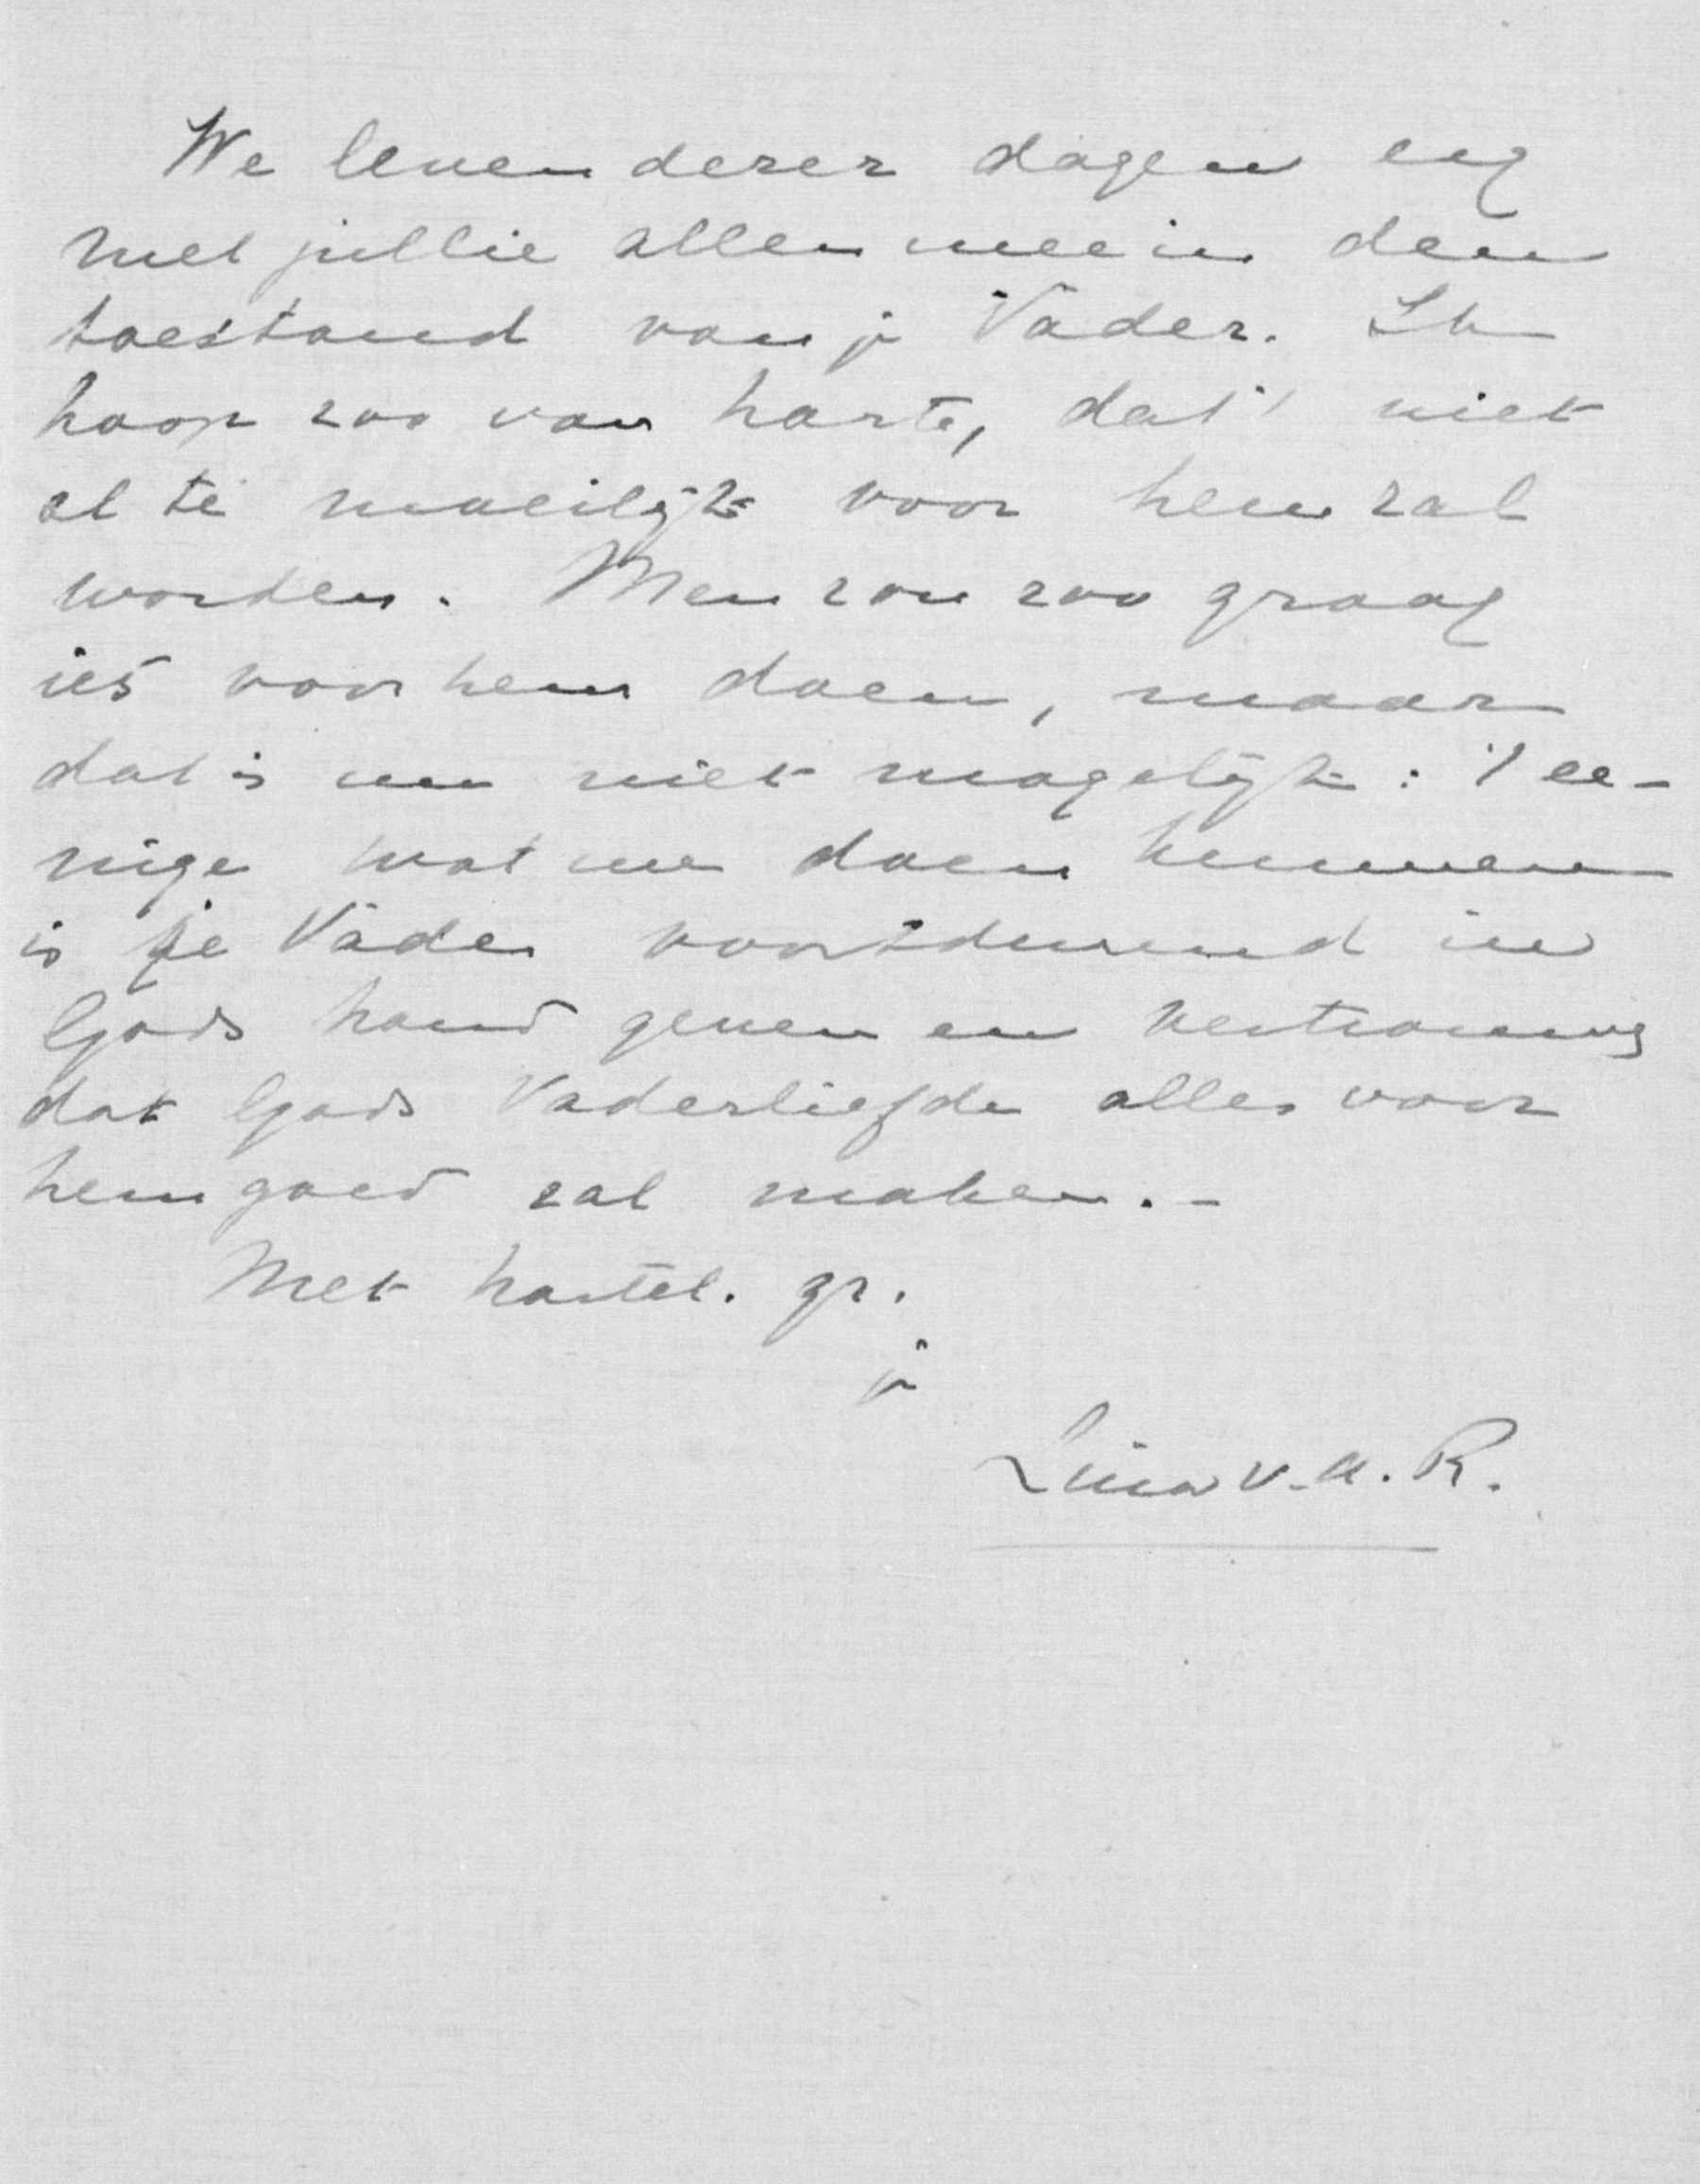 We leven dezer dagen erg
met jullie allen mee in den
toestand van je Vader. Ik
hoop zoo van harte, dat 't niet
al te moeilijk voor hem zal
worden. Men zou zoo graag
iets voor hem doen, maar
dat is nu niet mogelijk: 't ee-
nige wat we doen kunnen
is je Vader voortdurend in
Gods hand geven en vertrouwen
dat Gods Vaderliefde alles voor
hem goed zal maken. -
Met hartel. gr.
je
Lina v. R.